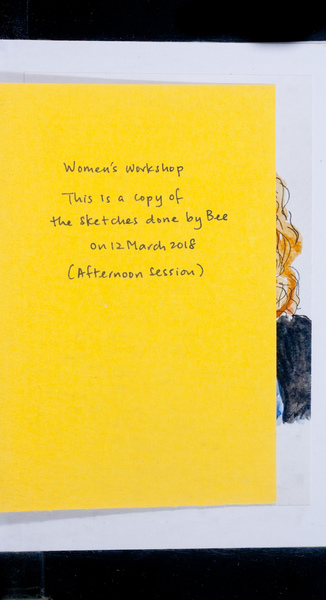 Women's Workshop
This is a copy of
the sketches done by Bee
on 12 March 2018
(Afternoon Session)